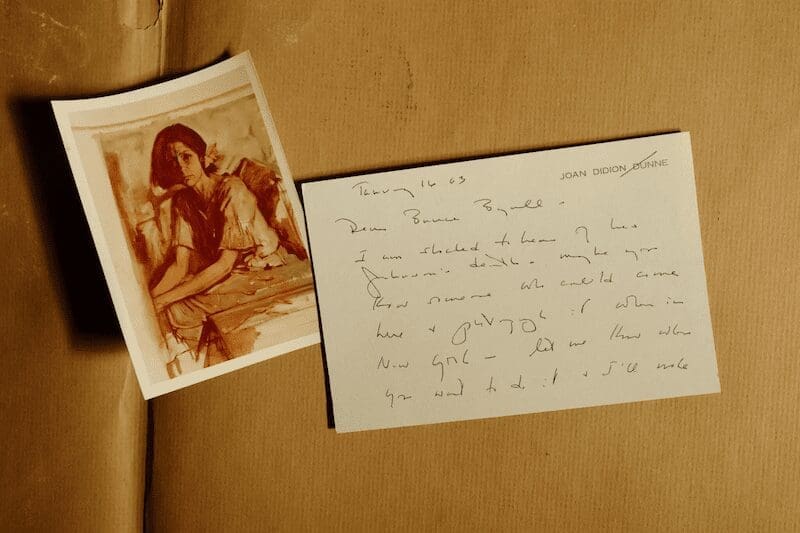 JOAN DIDION DUNNE
January 16 03
Dear Bruce
I am shocked to hear of Les
Johnson's death – maybe you
know someone who could come
here & photograph it when in
New York – let me know when
you want to do it & I'll make